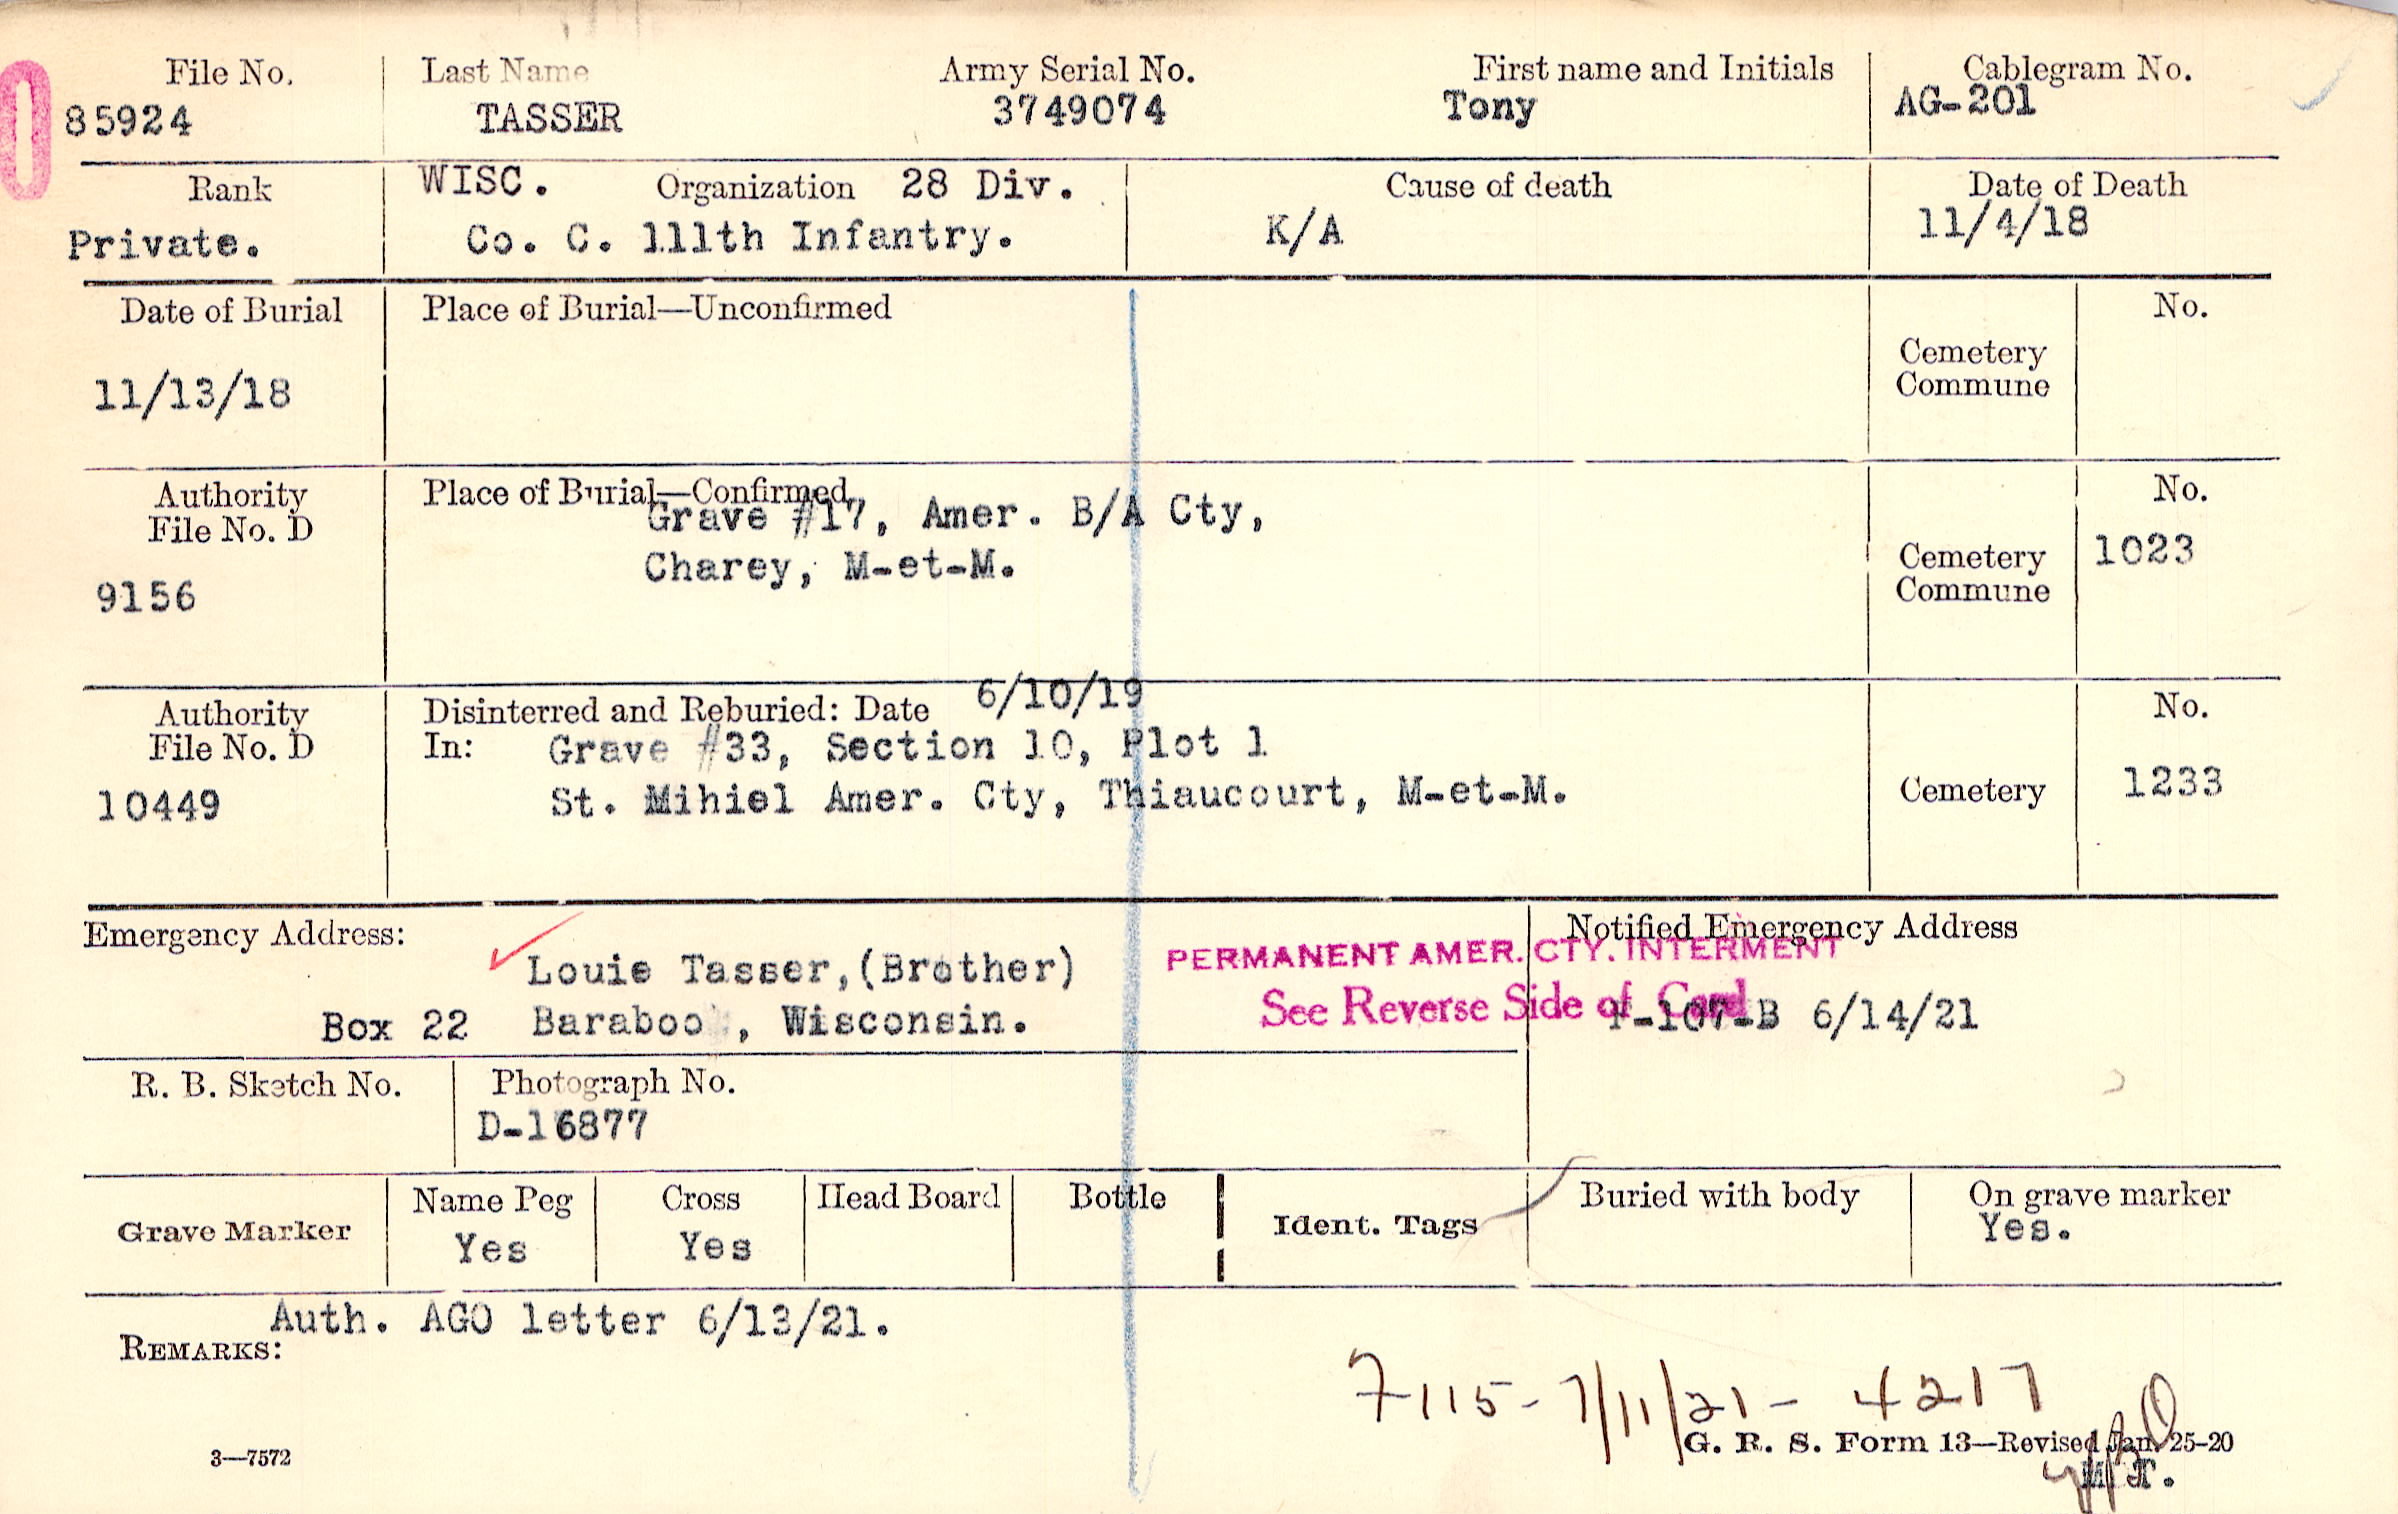 File No. Last Name Army Serial No. First name and Initials Cablegram No.
85924 TASSER 3749074 Tony AG-201
Rank WISC. Organization 28 Div. Cause of death Date of Death
Private. Co. C. 111th Infantry. K/A 11/4/18
Date of Burial Place of Burial—Unconfirmed No.
11/13/18 Cemetery
Commune
Authority Place of Burial—Confirmed No.
File No. D Grave #17, Amer. B/A Cty,
9156 Charey, M-et-M. Cemetery 1023
Commune
Authority Disinterred and Reburied: Date 6/10/19 No.
File No. D In: Grave #33, Section 10, Plot 1
10449 St. Mihiel Amer. Cty, Thiaucourt, M-et-M. Cemetery 1233
Emergency Address: Notified Emergency Address
Louie Tasser,(Brother) PERMANENT AMER. CTY. INTERMENT
Box 22 Baraboo , Wisconsin. See Reverse Side of Card
-107-B 6/14/21
R. B. Sketch No. Photograph No.
D-16877
Grave Marker Name Peg Cross Head Board Bottle Ident. Tags Buried with body On grave marker
Yes Yes Yes.
Auth. AGO letter 6/13/21.
REMARKS:
7115-7/11/21-4217
3—7572 G. R. S. Form 13—Revised Jan. 25-20